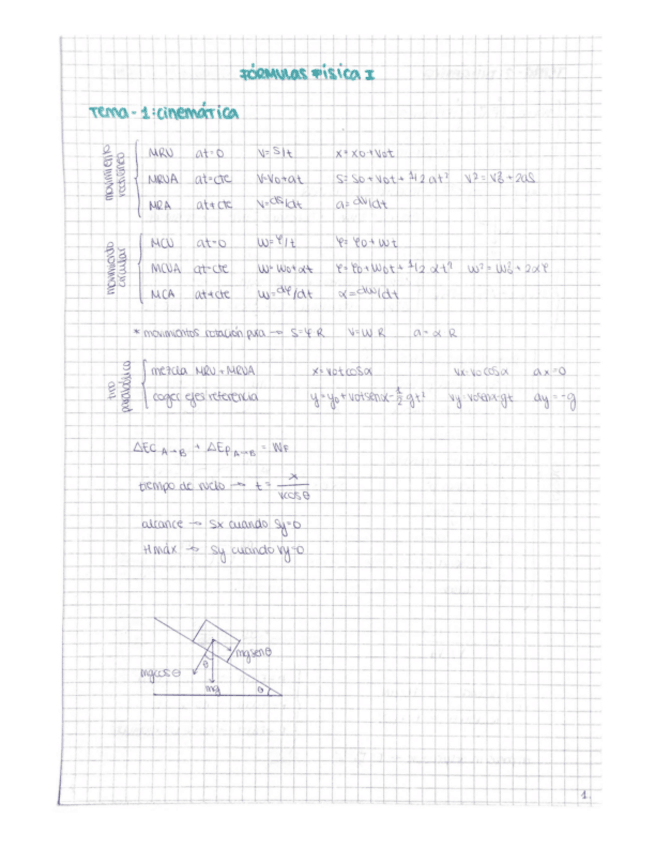 FÓRMULAS FÍSICA I
Tema - 1: cinemática
movimiento rectilíneo
MRU at=0 V=S/t x=x0+v0t
MRUA at=cte V=V0+at S=S0+V0t+1/2at² V²=V0²+2aS
MRA at≠cte V=dS/dt a=dV/dt
movimiento circular
MCU at=0 W=φ/t φ=φ0+Wt
MCUA at=cte W=W0+αt φ=φ0+W0t+1/2αt² W²=W0²+2αφ
MCA at≠cte W=dφ/dt α=dW/dt
* movimientos rotación pura → S=φR V=WR a=αR
tiro parabólico
mezcla MRU+MRUA x=v0tcosα vx=v0cosα ax=0
coger ejes referencia y=y0+v0tsenα-1/2gt² vy=v0senα-gt ay=-g
ΔEC A→B + ΔEp A→B = WF
tiempo de vuelo → t= x/vcosθ
alcance → Sx cuando Sy=0
Hmáx → Sy cuando Vy=0
mgsenθ
mgcosθ
θ
mg
θ
1